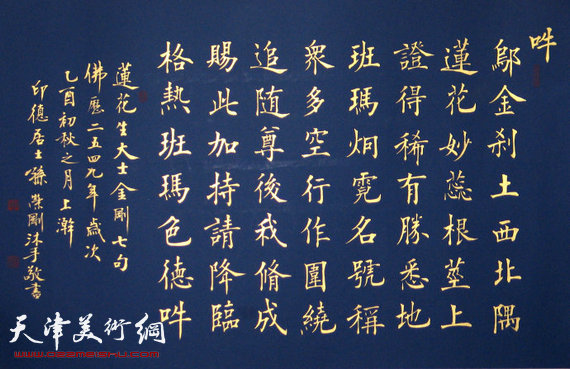 吽
鄔金刹土西北隅
蓮花妙蕊根莖上
證得稀有勝悉地
班瑪炯霓名號稱
衆多空行作圍繞
追随尊後我脩成
賜此加持請降臨
格熱班瑪色德吽
蓮花生大士金剛七句
佛曆二五四九年歲次
乙酉初秋之月上澣
印德居士 榮剛沐手敬書
天津美術網